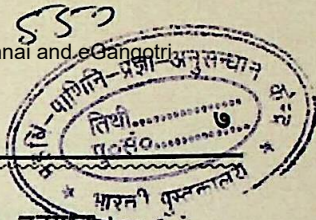 ५५७
nnai and eGangotri
महर्षि-पाणिनि-प्रज्ञा-अनुसन्धान
तिथी............
पु०सं०............ ७
* भारती पुस्तकालय *